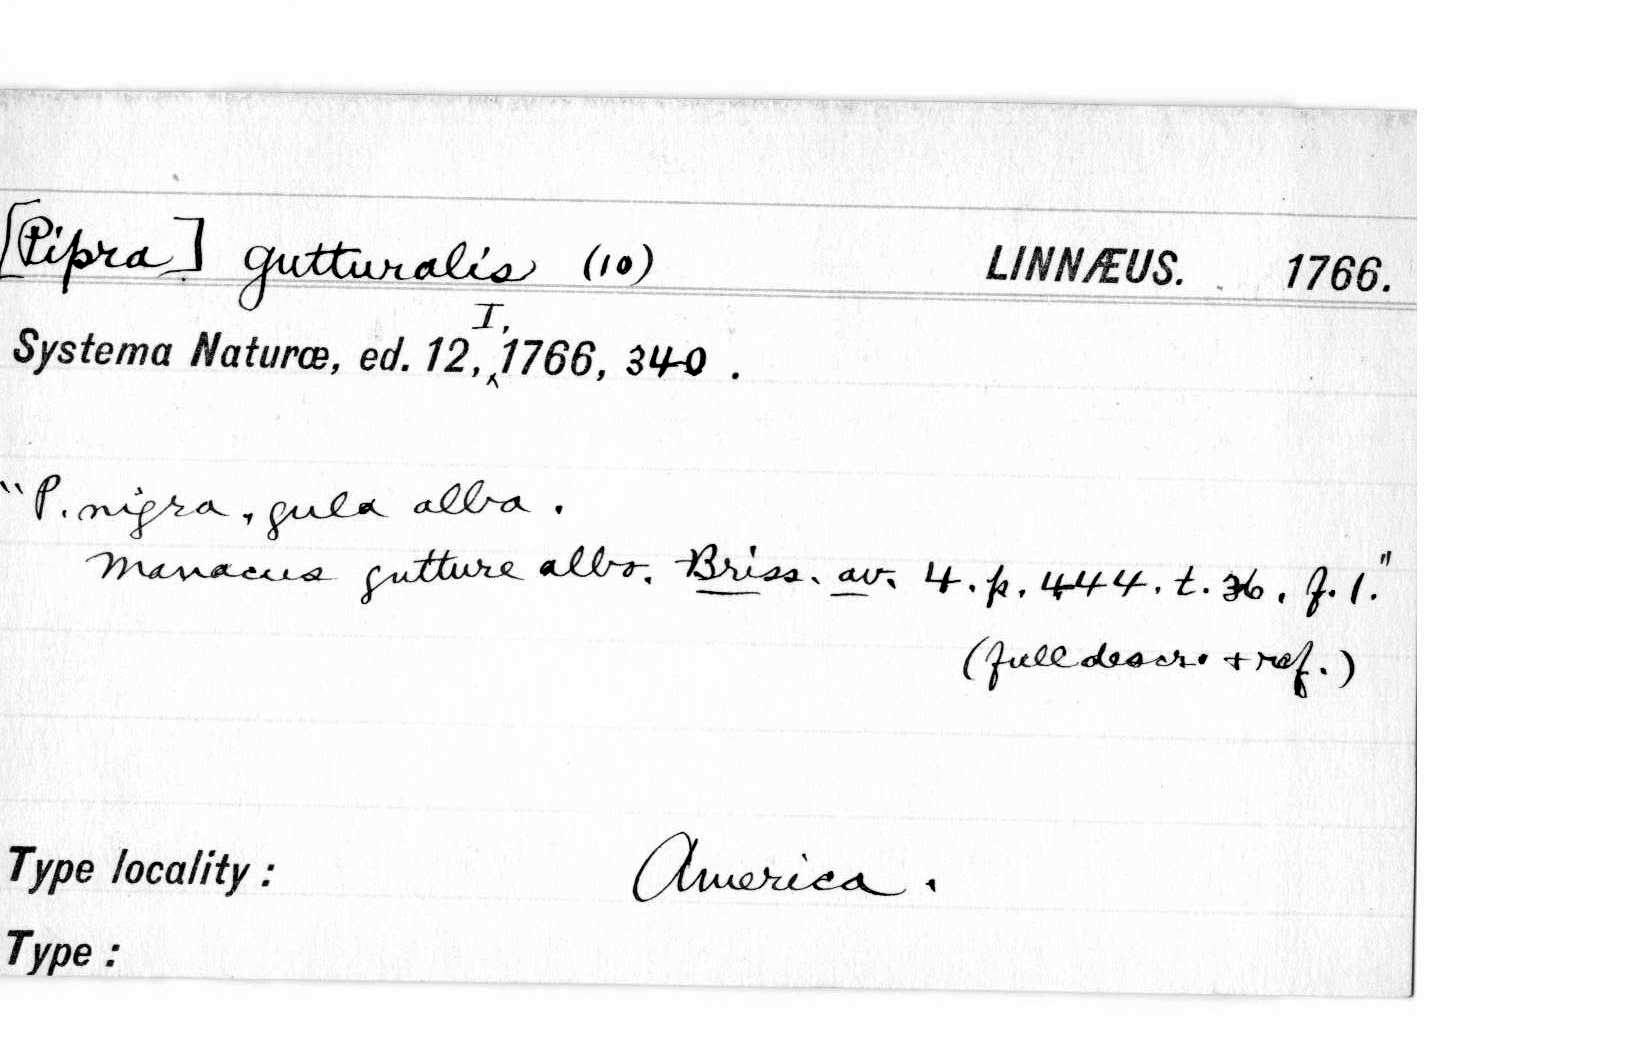 [Pipra] gutturalis (10) LINNÆUS. 1766.
Systema Naturæ, ed. 12, I, 1766, 340.
"P. nigra, gula alba.
Manacus gutture albo. Briss. av. 4. p. 444. t. 36. f. 1."
(full descr. + ref.)
Type locality: America.
Type: